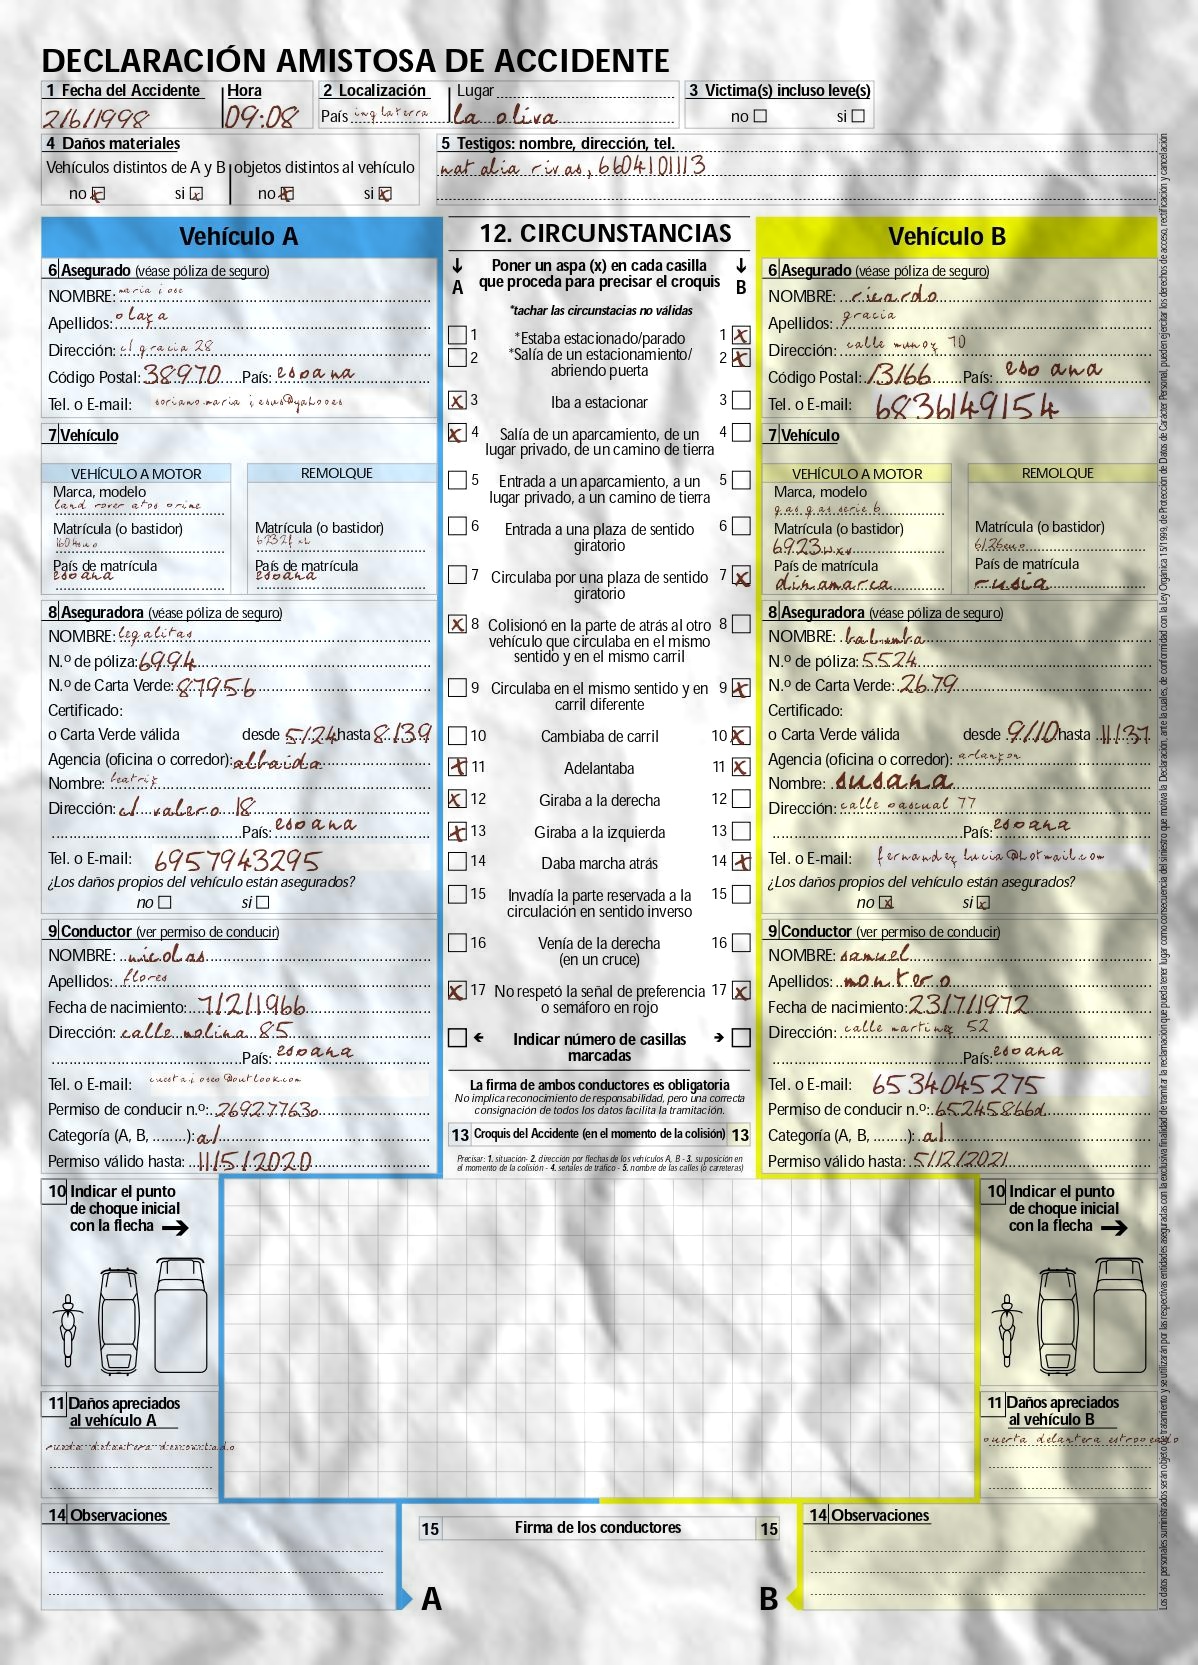 DECLARACIÓN AMISTOSA DE ACCIDENTE
1 Fecha del Accidente Hora
2/6/1998 09:08
2 Localización Lugar
País inglaterra la oliva
3 Victima(s) incluso leve(s)
no si
4 Daños materiales
Vehículos distintos de A y B objetos distintos al vehículo
no x si x no x si x
5 Testigos: nombre, dirección, tel.
natalia rivas, 6604101113
Vehículo A
6 Asegurado (véase póliza de seguro)
NOMBRE: maria jose
Apellidos: olaya
Dirección: c/ gracia 28
Código Postal: 38970 País: espana
Tel. o E-mail: soriano.maria jesus@yahooes
7 Vehículo
VEHÍCULO A MOTOR REMOLQUE
Marca, modelo
land rover atos prime
Matrícula (o bastidor) Matrícula (o bastidor)
País de matrícula País de matrícula
espana espana
8 Aseguradora (véase póliza de seguro)
NOMBRE: legalitas
N.º de póliza: 6994
N.º de Carta Verde: 87956
Certificado:
o Carta Verde válida desde 5/24 hasta 8/39
Agencia (oficina o corredor): albaida
Nombre: beatriz
Dirección: c/ valero 18
País: espana
Tel. o E-mail: 6957943295
¿Los daños propios del vehículo están asegurados?
no si
9 Conductor (ver permiso de conducir)
NOMBRE: nicolas
Apellidos: flores
Fecha de nacimiento: 7/2/1966
Dirección: calle molina 85
País: espana
Tel. o E-mail: cuestajoseo@outlook.com
Permiso de conducir n.º: 26927763o
Categoría (A, B, ........): a1
Permiso válido hasta: 11/5/2020
12. CIRCUNSTANCIAS
A B
Poner un aspa (x) en cada casilla
que proceda para precisar el croquis
*tachar las circunstacias no válidas
1 *Estaba estacionado/parado 1 x
2 *Salía de un estacionamiento/ 2 x
abriendo puerta
x 3 Iba a estacionar 3
x 4 Salía de un aparcamiento, de un 4
lugar privado, de un camino de tierra
5 Entrada a un aparcamiento, a un 5
lugar privado, a un camino de tierra
6 Entrada a una plaza de sentido 6
giratorio
7 Circulaba por una plaza de sentido 7 x
giratorio
x 8 Colisionó en la parte de atrás al otro 8
vehículo que circulaba en el mismo
sentido y en el mismo carril
9 Circulaba en el mismo sentido y en 9 x
carril diferente
10 Cambiaba de carril 10 x
x 11 Adelantaba 11 x
x 12 Giraba a la derecha 12
x 13 Giraba a la izquierda 13
14 Daba marcha atrás 14 x
15 Invadía la parte reservada a la 15
circulación en sentido inverso
16 Venía de la derecha 16
(en un cruce)
x 17 No respetó la señal de preferencia 17 x
o semáforo en rojo
Indicar número de casillas
marcadas
La firma de ambos conductores es obligatoria
No implica reconocimiento de responsabilidad, pero una correcta
consignación de todos los datos facilita la tramitación.
13 Croquis del Accidente (en el momento de la colisión) 13
Precisar: 1. situación- 2. dirección por flechas de los vehículos A, B - 3. su posición en
el momento de la colisión - 4. señales de tráfico - 5. nombre de las calles (o carreteras)
Vehículo B
6 Asegurado (véase póliza de seguro)
NOMBRE: ricardo
Apellidos: gracia
Dirección: calle munoz 10
Código Postal: 13166 País: espana
Tel. o E-mail: 6836149154
7 Vehículo
VEHÍCULO A MOTOR REMOLQUE
Marca, modelo
gas gas serie 6
Matrícula (o bastidor) Matrícula (o bastidor)
País de matrícula País de matrícula
dinamarca rusia
8 Aseguradora (véase póliza de seguro)
NOMBRE: balumba
N.º de póliza: 5524
N.º de Carta Verde: 2679
Certificado:
o Carta Verde válida desde 9/10 hasta 11/37
Agencia (oficina o corredor): arlanzon
Nombre: susana
Dirección: calle pascual 77
País: espana
Tel. o E-mail: fernandez lucia@hotmail.com
¿Los daños propios del vehículo están asegurados?
no x si x
9 Conductor (ver permiso de conducir)
NOMBRE: samuel
Apellidos: montero
Fecha de nacimiento: 23/7/1972
Dirección: calle martinez 52
País: espana
Tel. o E-mail: 6534045275
Permiso de conducir n.º: 65245866d
Categoría (A, B, ........): a1
Permiso válido hasta: 5/12/2021
10 Indicar el punto
de choque inicial
con la flecha
11 Daños apreciados
al vehículo A
rueda delantera desmontado
10 Indicar el punto
de choque inicial
con la flecha
11 Daños apreciados
al vehículo B
puerta delantera estropeado
14 Observaciones
15 Firma de los conductores 15
A B
14 Observaciones